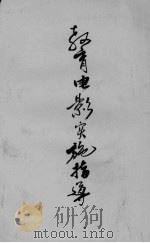 教育电影实施指导
www.duxiu.com